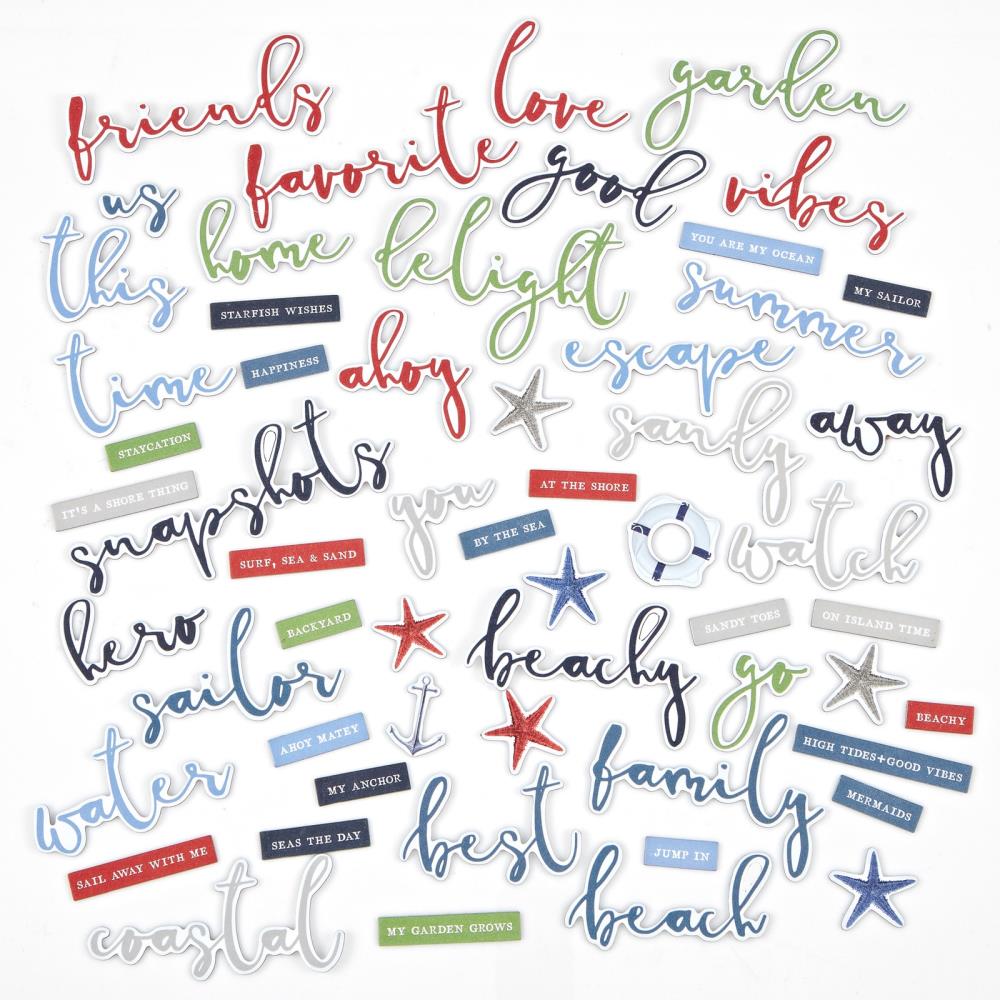 friends
love
garden
favorite
good
vibes
us
this
home
delight
YOU ARE MY OCEAN
MY SAILOR
STARFISH WISHES
summer
time
HAPPINESS
ahoy
escape
sandy
away
STAYCATION
IT'S A SHORE THING
snapshots
you
AT THE SHORE
BY THE SEA
watch
SURF, SEA & SAND
hero
BACKYARD
beachy
SANDY TOES
ON ISLAND TIME
sailor
go
BEACHY
AHOY MATEY
water
MY ANCHOR
family
HIGH TIDES+GOOD VIBES
MERMAIDS
best
SEAS THE DAY
JUMP IN
SAIL AWAY WITH ME
beach
coastal
MY GARDEN GROWS